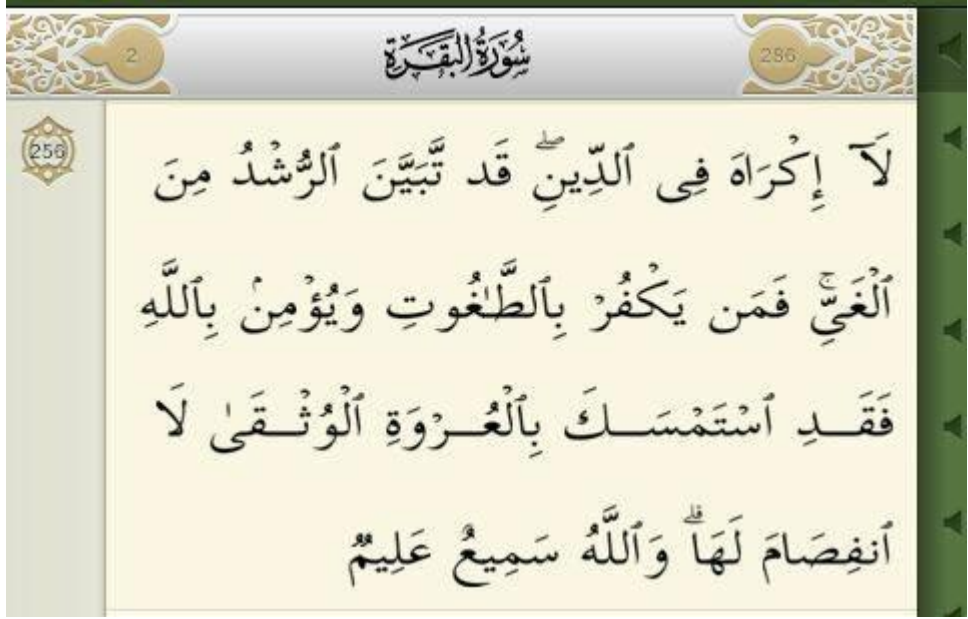 2 سُورَةُ البَقَرَةِ 286
256
لَآ إِكْرَاهَ فِى ٱلدِّينِ ۖ قَد تَّبَيَّنَ ٱلرُّشْدُ مِنَ
ٱلْغَىِّ ۚ فَمَن يَكْفُرْ بِٱلطَّـٰغُوتِ وَيُؤْمِنۢ بِٱللَّهِ
فَقَـــدِ ٱسْتَمْسَـــكَ بِٱلْعُـــرْوَةِ ٱلْوُثْـــقَىٰ لَا
ٱنفِصَامَ لَهَا ۗ وَٱللَّهُ سَمِيعٌ عَلِيمٌ